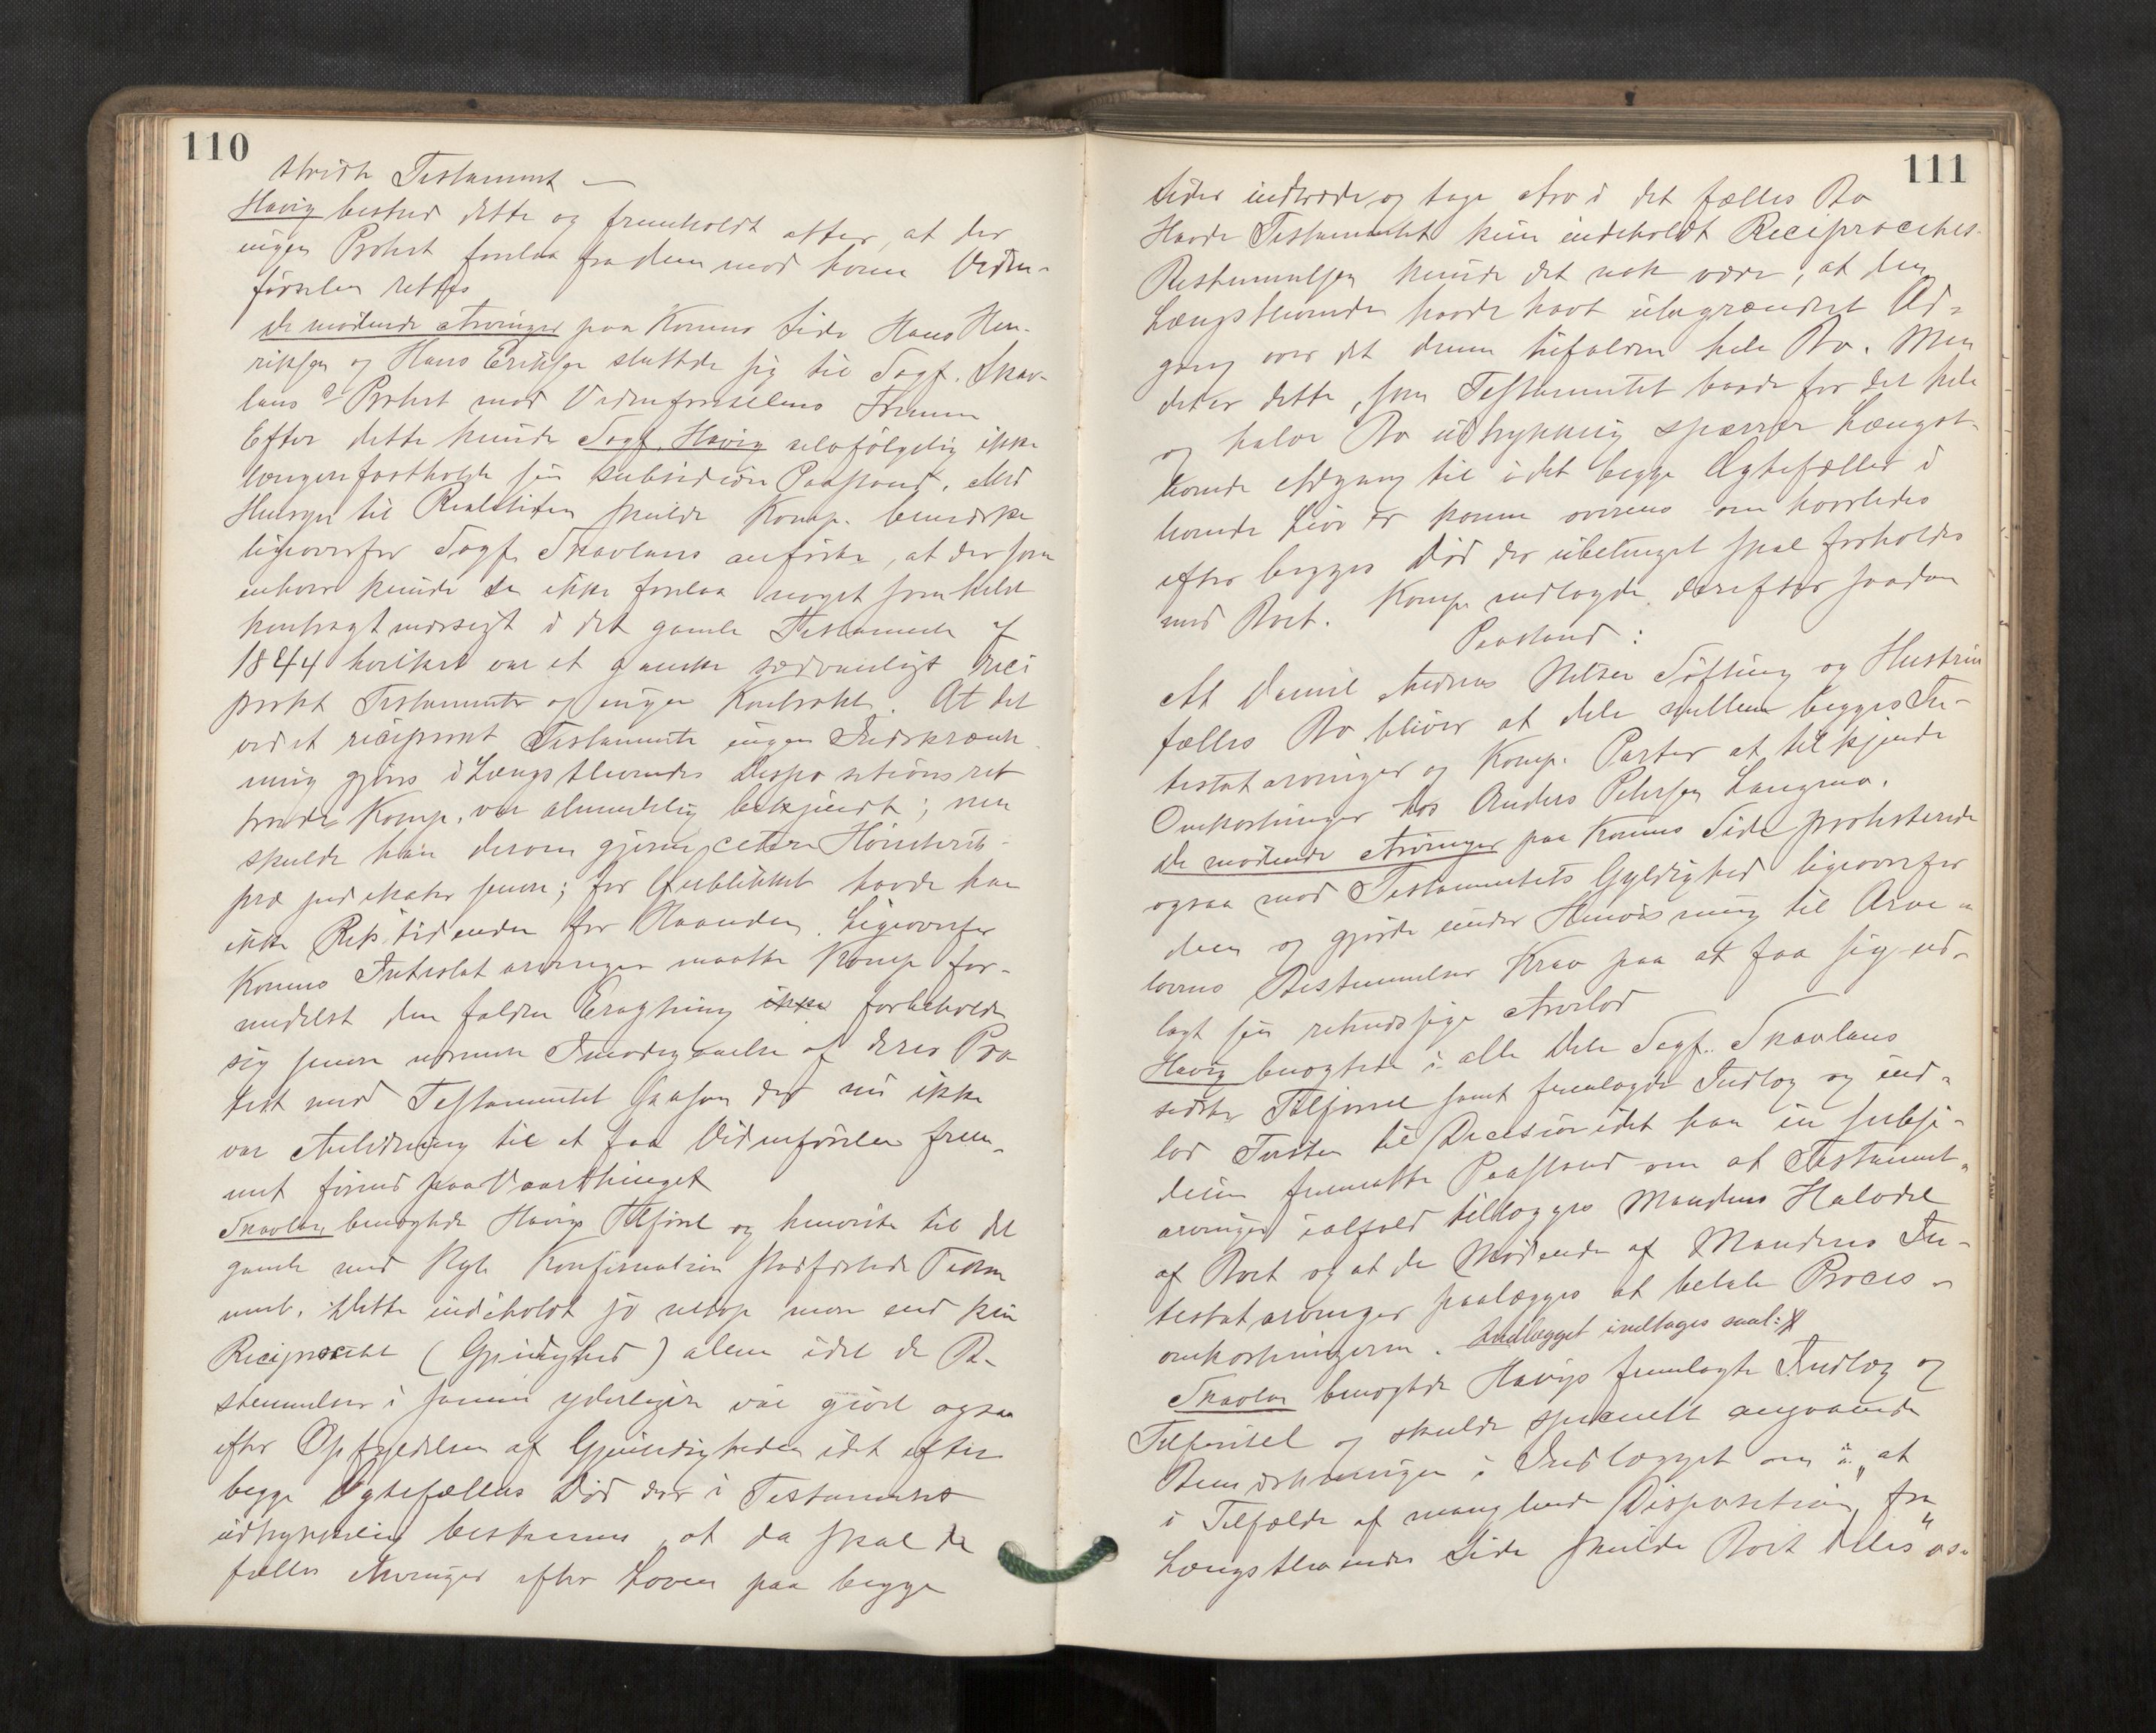 110
stridte Testament —
Havig bestred dette og fremholdt atter, at der
ingen Protest forelaa fra dem mod hvem Vidne-
førselen rettes
De mødende Arvinger paa Konens Side Hans Hen-
riksen og Hans Eriksen sluttede sig til Sagf. Skav-
lans Protest mod Vidneførselens Fremme
Efter dette kunde Sagf. Havig selvfølgelig ikke
længere fastholde sin subsidiære Paastand. Med
Hensyn til Realiteten skulde Komp. bemærke
ligeoverfor Sagf. Skavlans anførte, at der som
enhver kunde se ikke forelaa noget somhelst
kontragtmæssigt i det gamle Testamente af
1844 hvilket var et ganske sædvanligt reci
prokt Testamente og ingen Kontrakt. At det
ved et reciprokt Testamente ingen Indskrænk
ning gjøres i Længstlevendes Dispositionsret
troede Komp. var almindelig bekjendt; men
skulde han derom gjerne citere Høiesterets-
præjudikater senere; for Øieblikket havde han
ikke Retstidenden for Haanden. Ligeoverfor
Konens Intestatarvinger maatte Komp for-
medelst den faldne Eragtning ikke forbeholde
sig senere nærmere Imødegaaelse af deres Pro
test mod Testamentet saasom der nu ikke
var Anledning til at faa Vidneførselen frem-
met førend paa Vaarthinget
Skavlan benegtede Havigs Tilførsel og henviste til det
gamle med Kgle Konfirmation stadfæstede Testa
ment. Dette indeholdt jo netop mere end kun
Reciprocitet (Gjensidighed) alene idet de Be-
stemmelser i samme yderligere var gjort ogsaa
efter Opfyldelsen af Gjensidigheden idet efter
begge Ægtefællers Død der i Testamentet
udtrykkelig bestemmes, at da skal de
fælles Arvinger efter Loven paa begge
111
Sider indtræde og tage Arv i det fælles Bo
Havde Testamentet kun indeholdt Reciprocitets-
Bestemmelsen kunde det nok være, at den
Længstlevende havde havt ubegrændset Ad-
gang over det denne tilfaldne hele Bo. Men
det er dette, som Testamentet baade for det hele
og halve Bo udtrykkelig spærrer Længst-
levende Adgang til idet begge Ægtefæller i
levende Live er komne overens om hvorledes
efter begges Død der ubetinget skal forholdes
med Boet. Komp. nedlagde derefter saadan
Paastand:
At Daniel Andreas Nilsen Søfting og Hustrus
fælles Bo bliver at dele mellem begges In-
testatarvinger og Komp. Parter at tilkjende
Omkostninger hos Anders Petersen Langmo.
De mødende Arvinger paa Konens Side protesterede
ogsaa mod Testamentets Gyldighed ligeoverfor
dem og gjorde under Henvisning til Arve-
lovens Bestemmelser Krav paa at faa sig ud-
lagt sin retmæssige Arvelod
Havig benegtede i alle Dele Sagf. Skavlans
sidste Tilførsel samt fremlagde Indlæg og ind-
lod Tvisten til Decision idet han in subsi-
dium fremsatte Paastand om at Testament-
arvingen ialfald tillægges Mandens Halvdel
af Boet og at de Mødende af Mandens In-
testatarvinger paalægges at betale Proces-
omkostningerne. Indlægget indtages saal:
Skavlan benegtede Havigs fremlagte Indlæg og
Tilførsel og skulde specielt angaaende
Bemærkningen i Indlægget om "at
i Tilfælde af manglende Disposition fra
Længstlevendes Side skulde Boet deles" os.